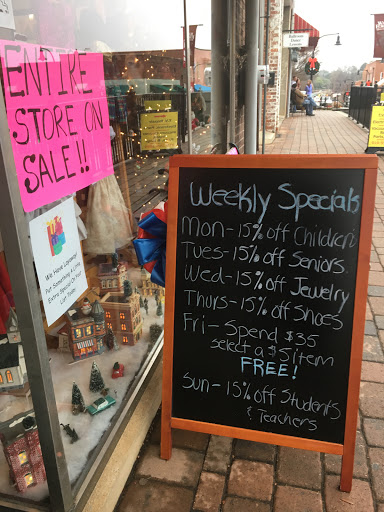 ENTIRE
STORE ON
SALE!!
We Have Loyalty!
Put Something A Little
Extra Special On Your
List Today
Weekly Specials
Mon - 15% off Children
Tues - 15% off Seniors
Wed - 15% off Jewelry
Thurs - 15% off Shoes
Fri - Spend $35
select a $5 item
FREE!
Sun - 15% off Students
& Teachers